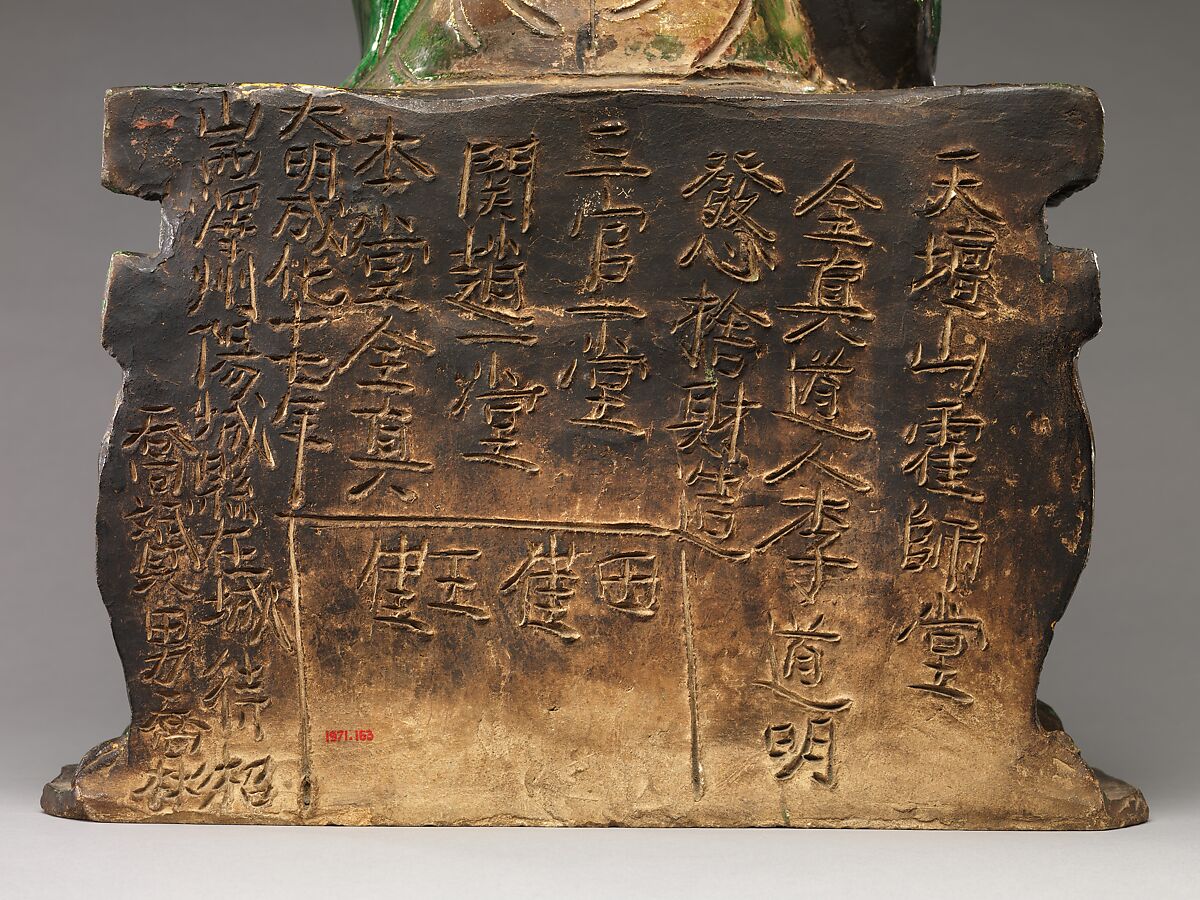 天壇山霍師堂
全真道人李道明
發心捨財造
三官一堂
関趙一堂
本堂全真
田崔王
大明成化十七年
山西澤州陽城縣在城待招
喬贇男喬
1971.163